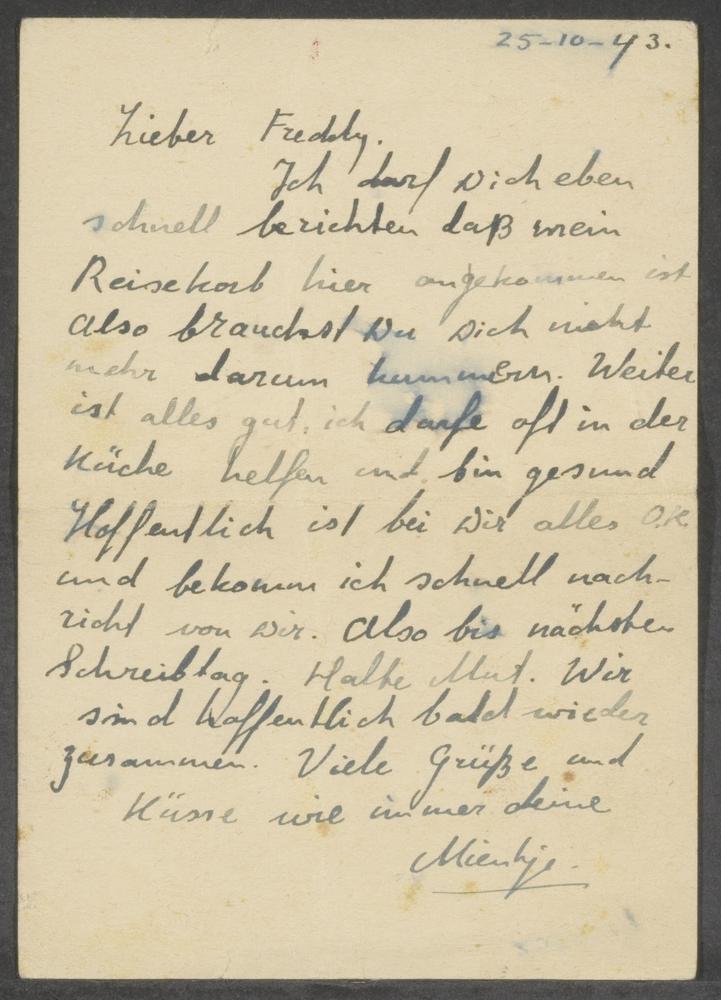 25-10-43.
Lieber Freddy.
Ich darf Dich eben
schnell berichten daß mein
Reisekorb hier angekommen ist
Also brauchst Du Dich nicht
mehr darum kummern. Weiter
ist alles gut, ich darfe oft in der
Küche helfen und bin gesund
Hoffentlich ist bei Dir alles O.K.
und bekomm ich schnell nach-
richt von Dir. Also bis nächsten
Schreibtag. Halte Mut. Wir
sind hoffentlich bald wieder
zusammen. Viele Grüße und
Küsse wie immer deine
Mientje.